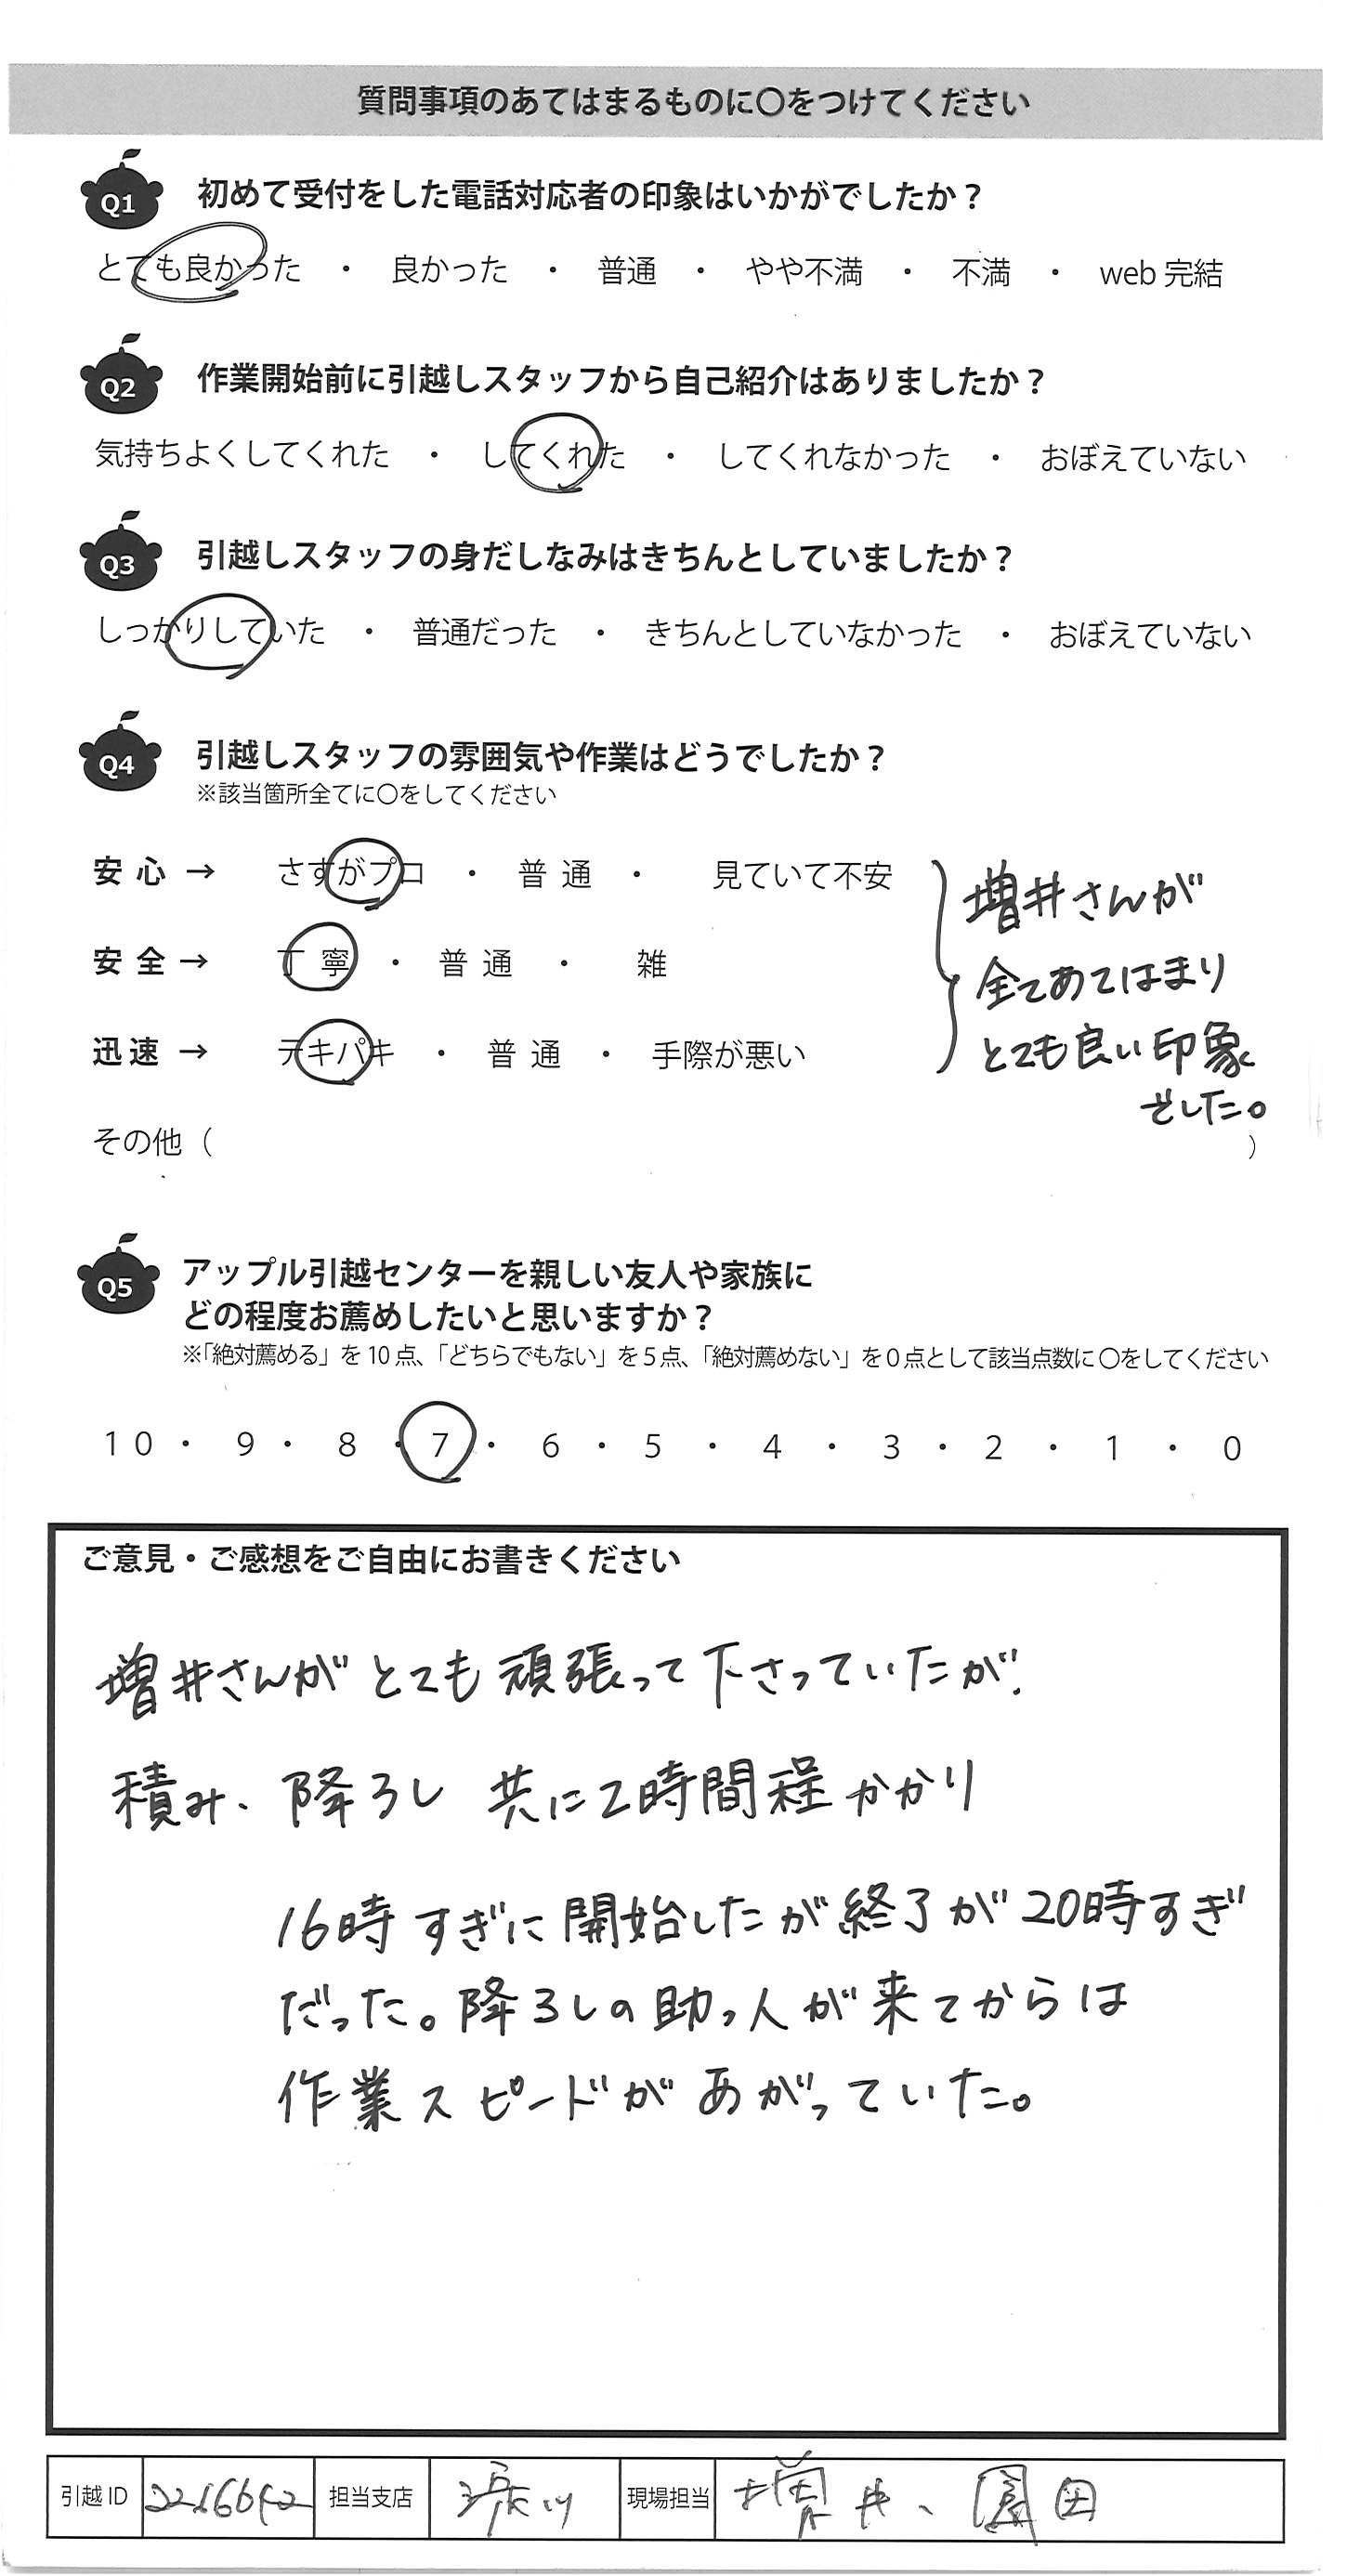 質問事項のあてはまるものに〇をつけてください
Q1 初めて受付をした電話対応者の印象はいかがでしたか？
とても良かった ・ 良かった ・ 普通 ・ やや不満 ・ 不満 ・ web 完結
Q2 作業開始前に引越しスタッフから自己紹介はありましたか？
気持ちよくしてくれた ・ してくれた ・ してくれなかった ・ おぼえていない
Q3 引越しスタッフの身だしなみはきちんとしていましたか？
しっかりしていた ・ 普通だった ・ きちんとしていなかった ・ おぼえていない
Q4 引越しスタッフの雰囲気や作業はどうでしたか？
※該当箇所全てに〇をしてください
安心 → さすがプロ ・ 普通 ・ 見ていて不安
安全 → 丁寧 ・ 普通 ・ 雑
迅速 → テキパキ ・ 普通 ・ 手際が悪い
増井さんが
全てあてはまり
とても良い印象
でした。
その他（ ）
Q5 アップル引越センターを親しい友人や家族に
どの程度お薦めしたいと思いますか？
※「絶対薦める」を 10 点、「どちらでもない」を 5 点、「絶対薦めない」を 0 点として該当点数に 〇をしてください
10 ・ 9 ・ 8 ・ 7 ・ 6 ・ 5 ・ 4 ・ 3 ・ 2 ・ 1 ・ 0
ご意見・ご感想をご自由にお書きください
増井さんがとても頑張って下さっていたが、
積み、降ろし 共に2時間程かかり
16時すぎに開始したが終了が20時すぎ
だった。降ろしの助っ人が来てからは
作業スピードがあがっていた。
引越 ID 担当支店 現場担当 増井、園田